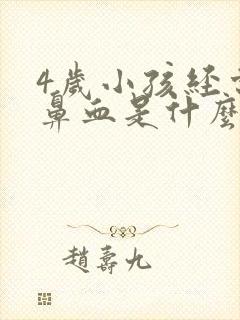 4歲小孩經
鼻血是什麼
趙壽九